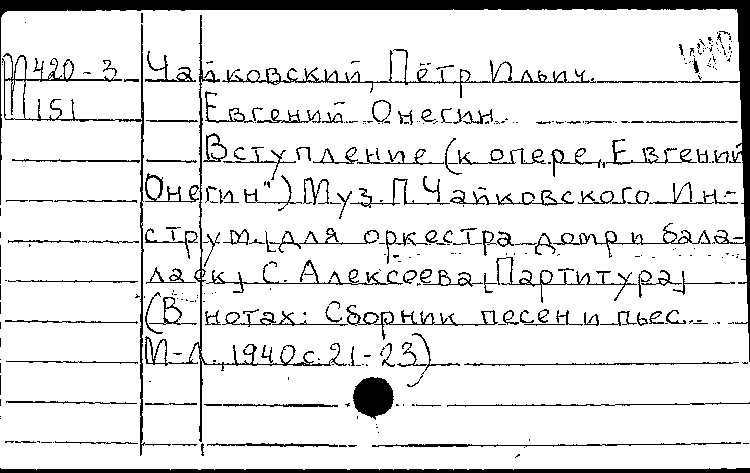 М420-3 Чайковский, Пётр Ильич.
М151 Евгений Онегин.
Вступление (к опере „Евгений
Онегин") Муз. П. Чайковского. Ин-
струм. [для оркестра домр и бала-
лаек] С. Алексеева [Партитура]
(В нотах: Сборник песен и пьес...
М-Л., 1940 с. 21-23)